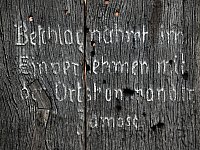 Beschlagnahmt im
Einvernehmen mit
der Ortskommandantur
Zamosc